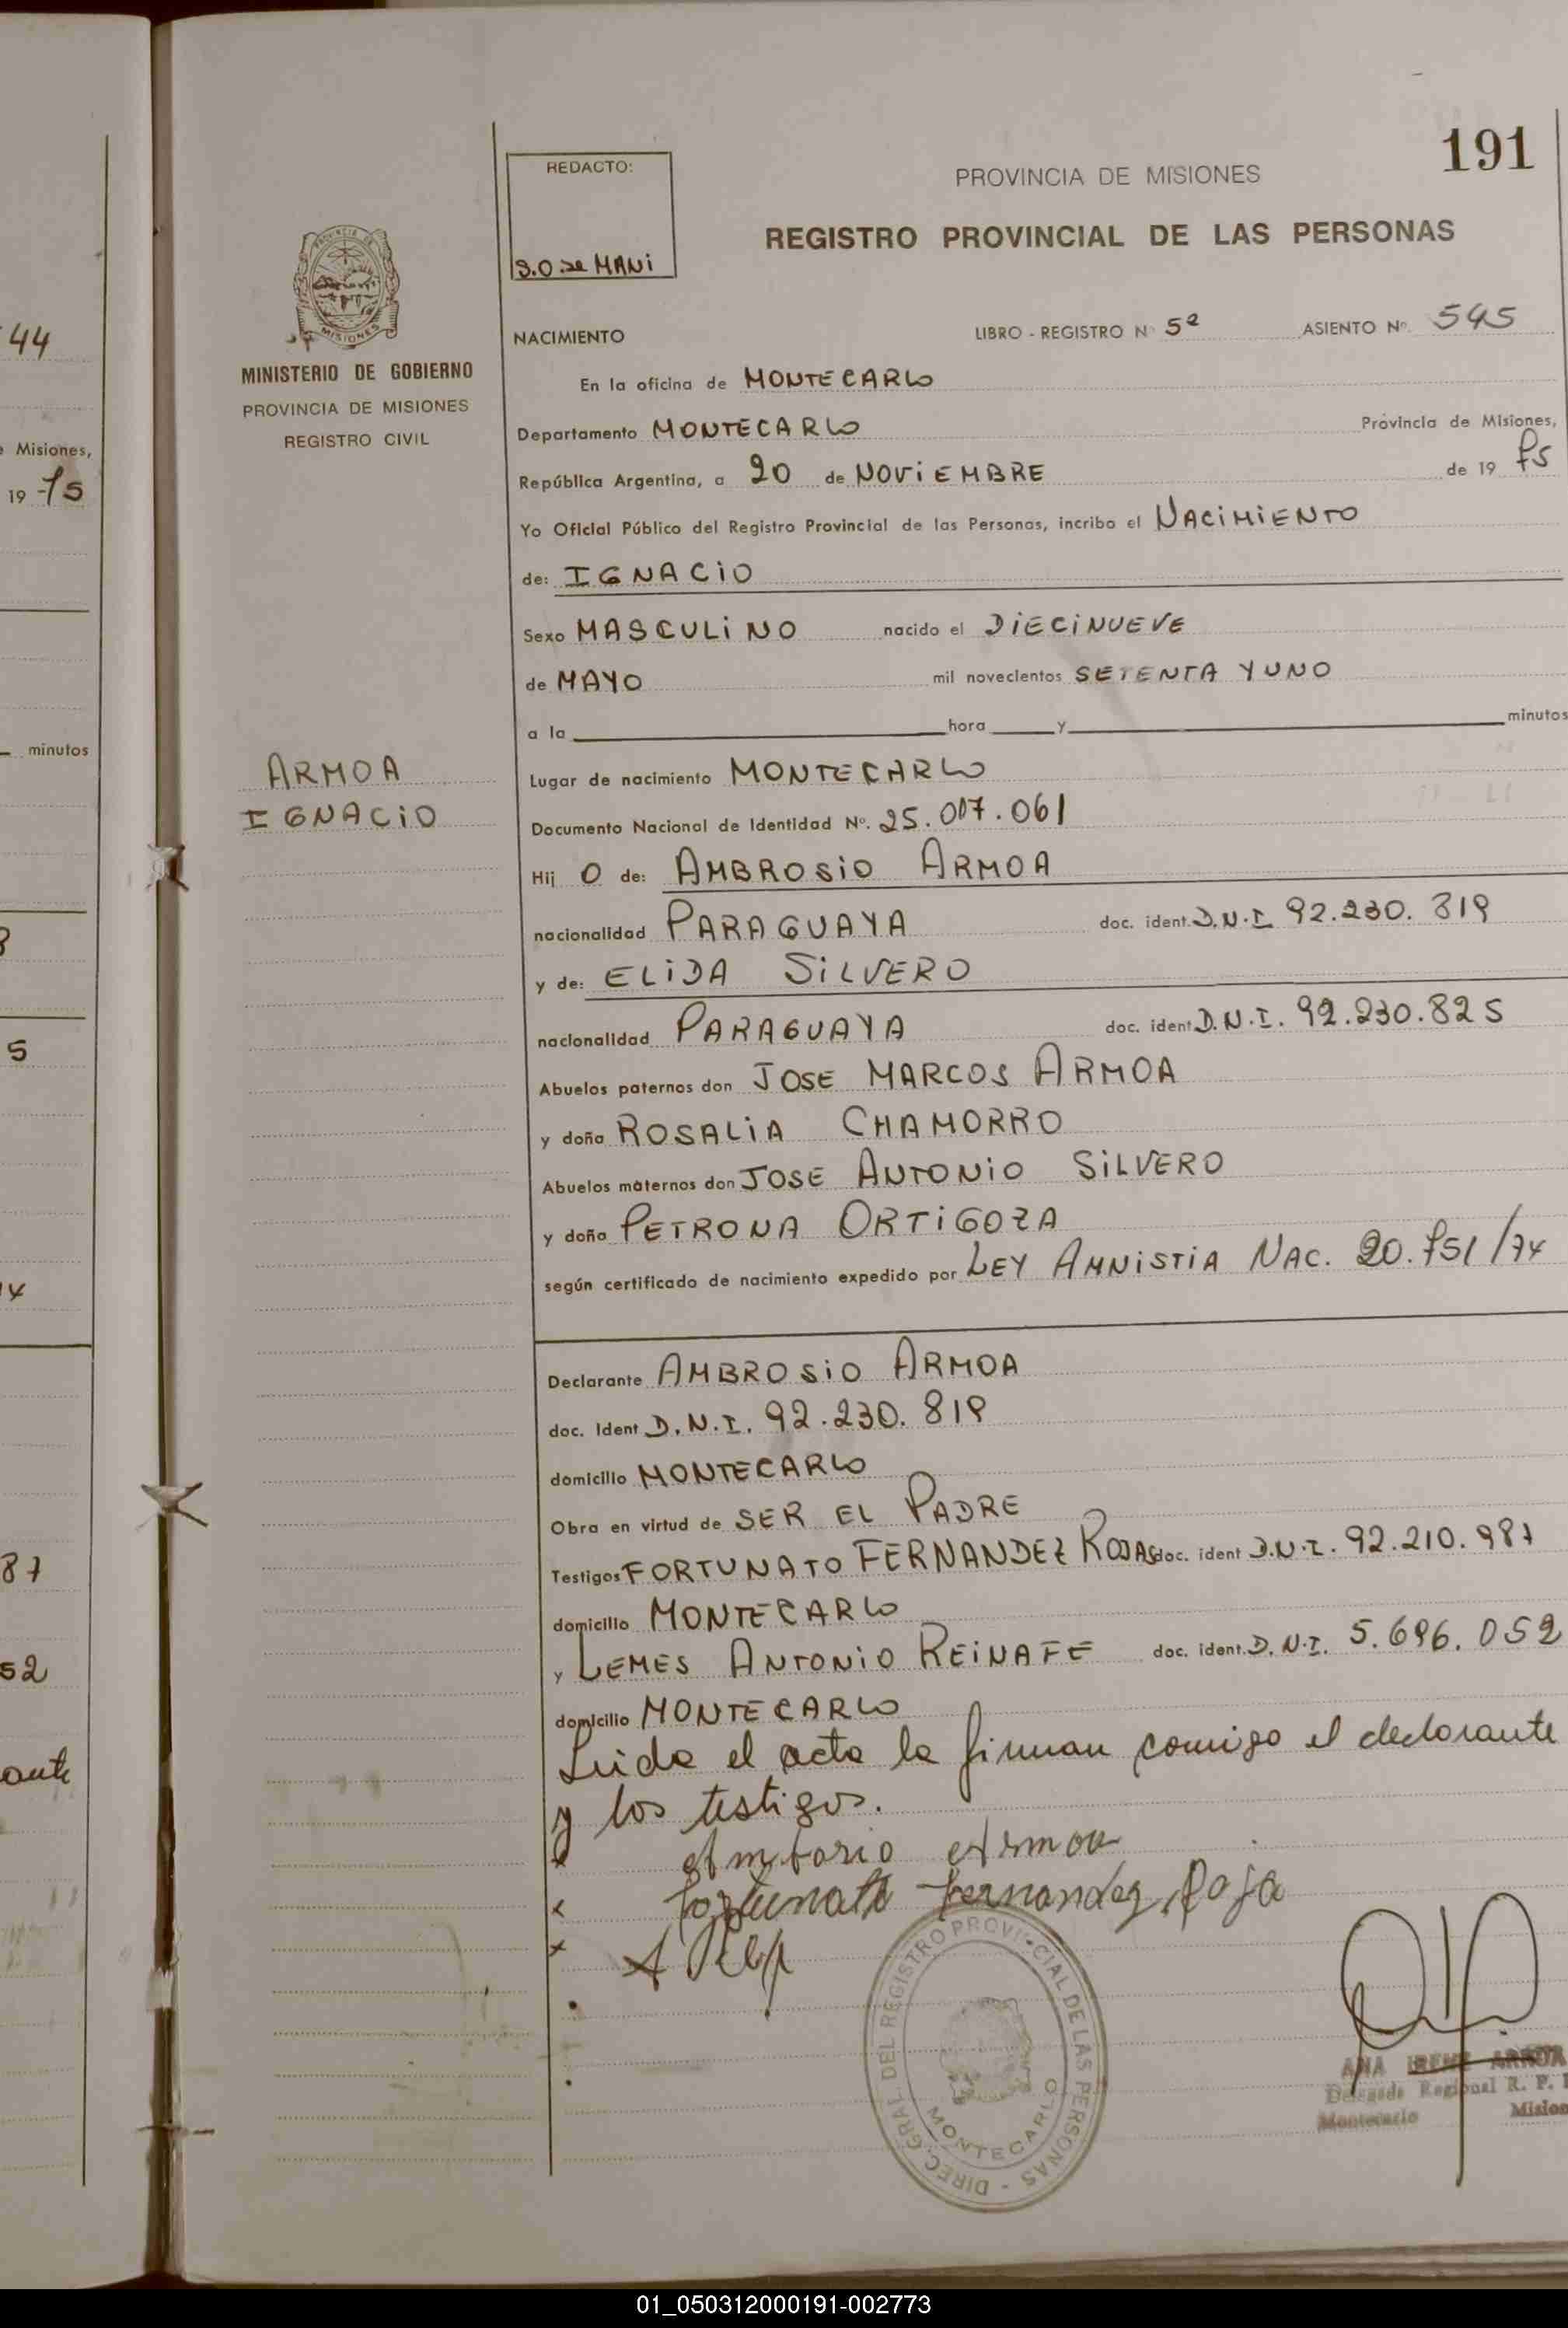 44
e Misiones,
19 75
minutos
5
87
52
ante
191
REDACTO:
S.O de MANI
PROVINCIA DE MISIONES
REGISTRO PROVINCIAL DE LAS PERSONAS
PROVINCIA DE
MISIONES
MINISTERIO DE GOBIERNO
PROVINCIA DE MISIONES
REGISTRO CIVIL
NACIMIENTO LIBRO - REGISTRO Nº 5º ASIENTO Nº. 545
En la oficina de MONTECARLO
Departamento MONTECARLO Provincia de Misiones,
República Argentina, a 20 de NOVIEMBRE de 19 75
Yo Oficial Público del Registro Provincial de las Personas, incribo el NACIMIENTO
de: IGNACIO
Sexo MASCULINO nacido el DIECINUEVE
de MAYO mil novecientos SETENTA Y UNO
a la hora y minutos
ARMOA
IGNACIO
Lugar de nacimiento MONTECARLO
Documento Nacional de Identidad Nº. 25.007.061
Hij O de: AMBROSIO ARMOA
nacionalidad PARAGUAYA doc. ident. D.N.I. 92.230.819
y de: ELIDA SILVERO
nacionalidad PARAGUAYA doc. ident. D.N.I. 92.230.825
Abuelos paternos don JOSE MARCOS ARMOA
y doña ROSALIA CHAMORRO
Abuelos maternos don JOSE ANTONIO SILVERO
y doña PETRONA ORTIGOZA
según certificado de nacimiento expedido por LEY AMNISTIA NAC. 20.751/74
Declarante AMBROSIO ARMOA
doc. Ident D.N.I. 92.230.819
domicilio MONTECARLO
Obra en virtud de SER EL PADRE
Testigos FORTUNATO FERNANDEZ ROJAS doc. ident D.N.I. 92.210.987
domicilio MONTECARLO
y LEMES ANTONIO REINAFE doc. ident. D.N.I. 5.696.052
domicilio MONTECARLO
Leida el acta la firman comigo el declarante
y los testigos.
Ambrosio Armoa
fortunato fernandez Roja
DIREC. GRAL DEL REGISTRO PROVINCIAL DE LAS PERSONAS -
MONTECARLO
ANA IRENE
Delegada Regional R. P.
Montecarlo Mision
01_050312000191-002773